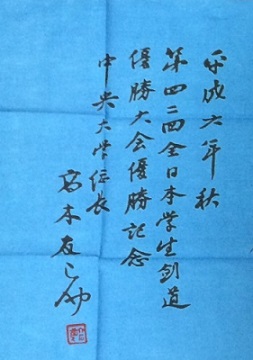 平成六年秋
第四二回全日本学生剣道
優勝大会優勝記念
中央大学学長
高木友之助